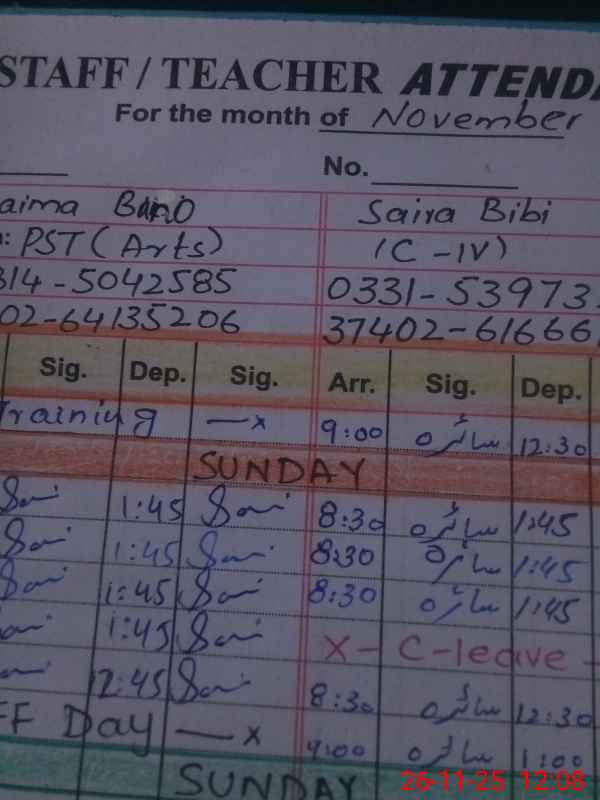 STAFF / TEACHER ATTENDA
For the month of November
No.
aima Bano Saira Bibi
: PST (Arts) (C-IV)
314-5042585 0331-53973
02-64135206 37402-61666
Sig. Dep. Sig. Arr. Sig. Dep.
Training —x 9:00 سائرہ 12:30
SUNDAY
1:45 8:30 سائرہ 1:45
1:45 8:30 سائرہ 1:45
1:45 8:30 سائرہ 1:45
1:45 X- C-leave -
12:45 8:30 سائرہ 12:30
FF Day —x 9:00 سائرہ 1:00
SUNDAY
26-11-25 12:08